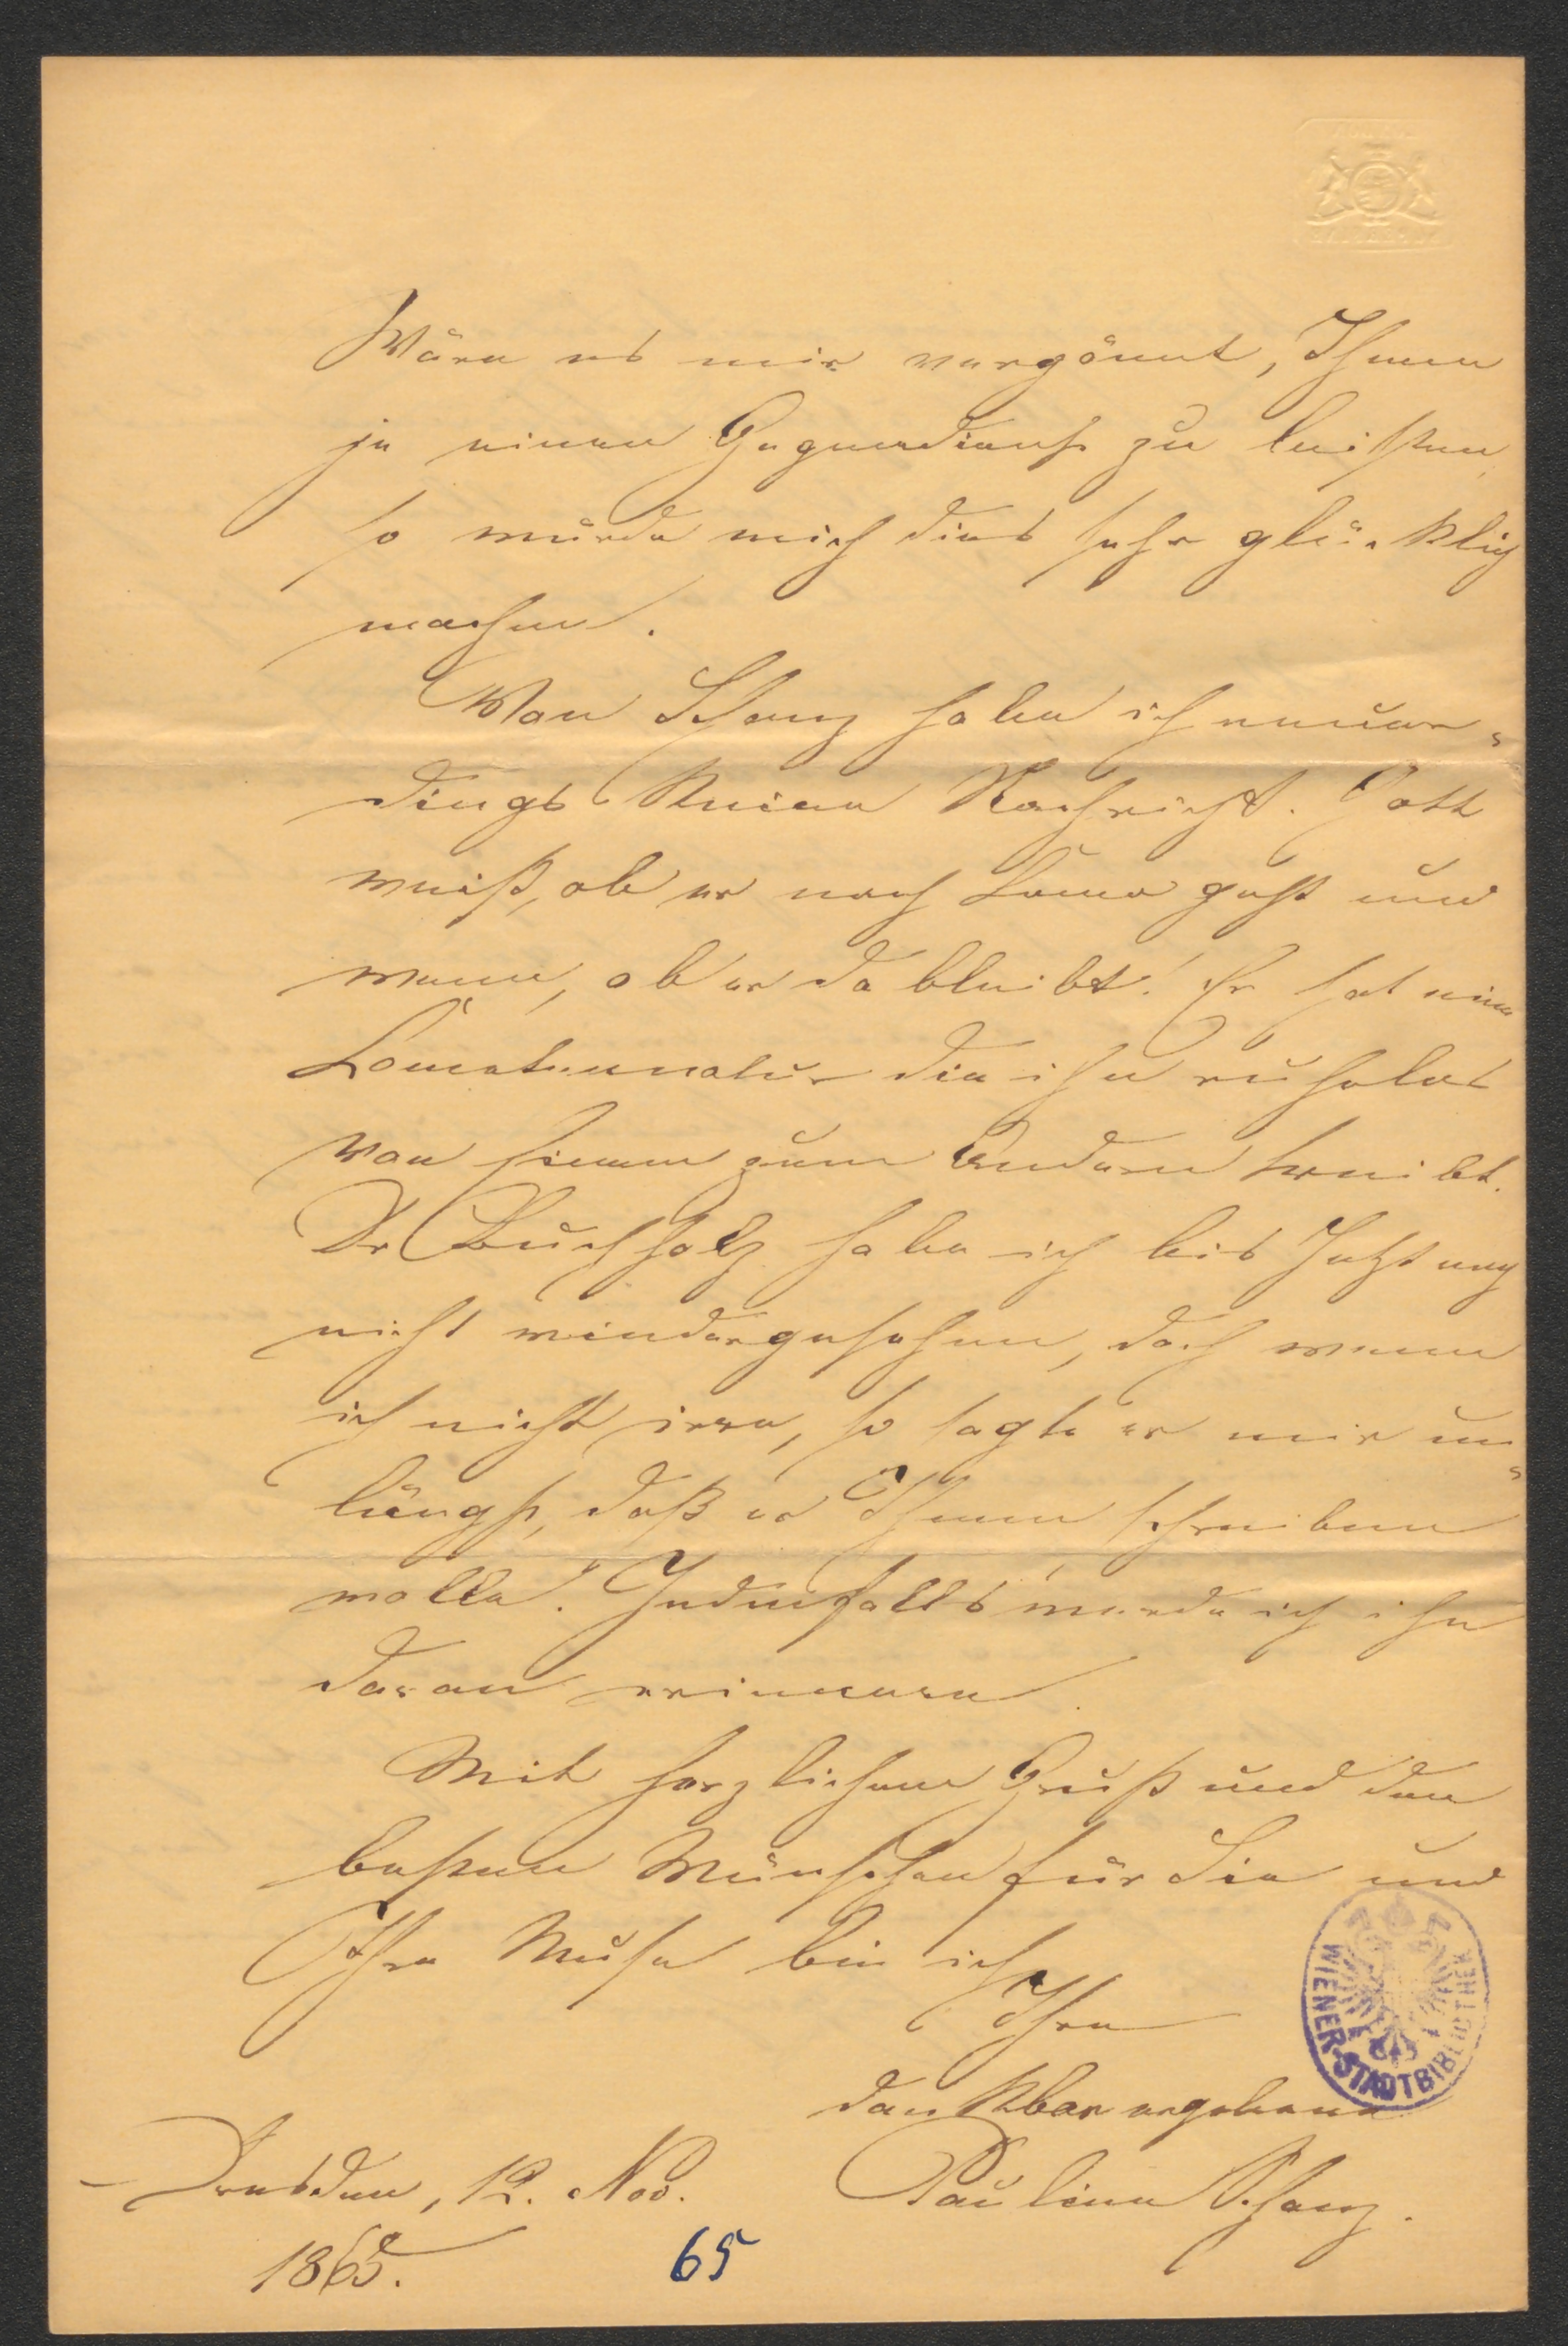 Wäre es mir vergönnt, Ihnen
je einen Gegendienst zu leisten,
so würde mich dies sehr glücklich
machen.
Von Schanz habe ich neuer-
dings keine Nachricht. Gott
weiß, ob er nach geht und
wenn, ob er da bleibt! Er hat eine
Kometennatur die ihn ruhelos
von Einem zum Andern treibt.
Dr Buchholz habe ich bis Jetzt noch
nicht wiedergesehen, doch wenn
ich nicht irre, so sagte er mir un-
längst, daß er Ihnen schreiben
wolle! Jedenfalls werde ich ihn
daran erinnern.
Mit herzlichem Gruß und den
besten Wünschen für Sie und
Ihre Muse bin ich
Ihre
dankbar ergebene
Pauline Schanz.
Dresden, 12. Nov.
1865.
65
WIENER-STADTBIBLIOTHEK